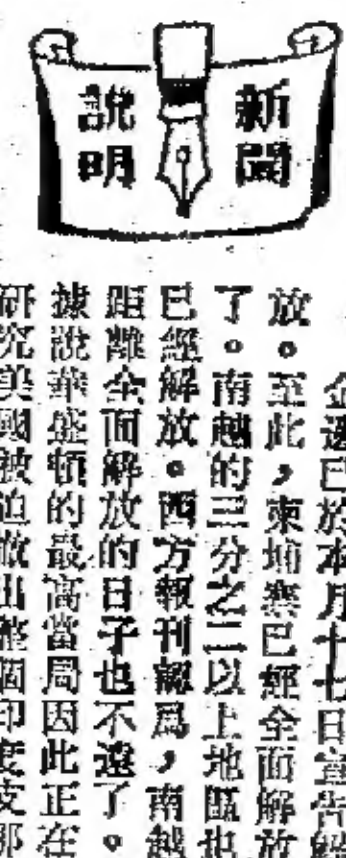 新聞
說明
金邊已於本月十七日宣告解
放。至此,柬埔寨已經全面解放
了。南越的三分之二以上地區也
已經解放。西方報刊認爲,南越
距離全面解放的日子也不遠了。
據說華盛頓的最高當局因此正在
研究美國被迫撤出整個印度支那